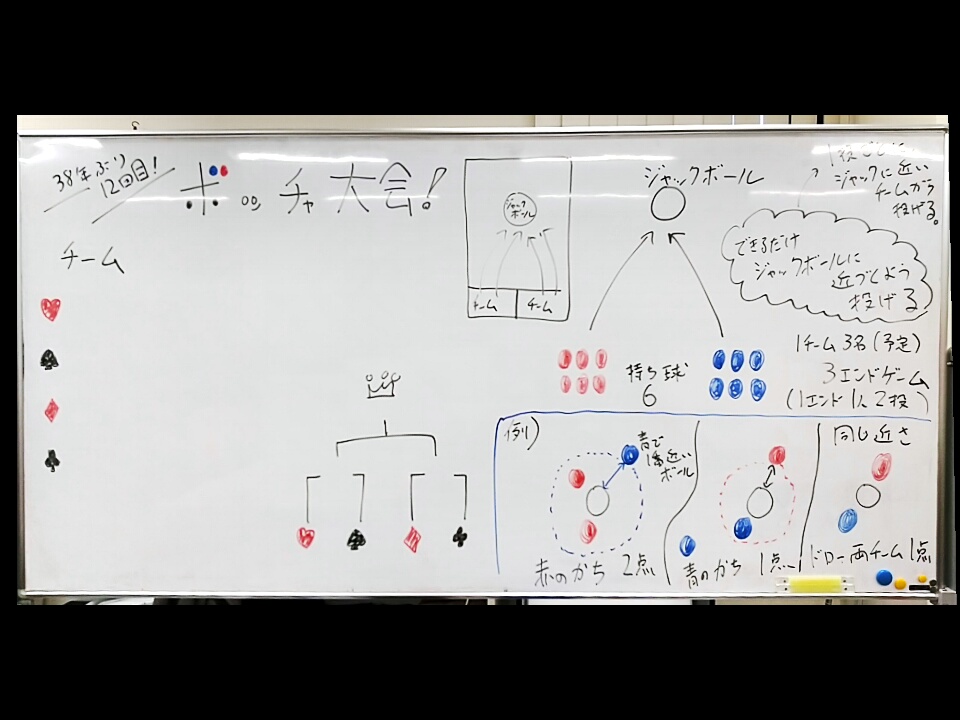 38年ぶり
12回目!
ボッチャ大会!
チーム
ジャック
ボール
チーム
チーム
ジャックボール
ジャックに近い
チームから
投げる。
できるだけ
ジャックボールに
近づくよう
投げる
持ち球
6
1チーム3名(予定)
3エンドゲーム
(1エンド1人2投)
例)
青で
1番近い
ボール
赤のかち 2点
青のかち 1点
同じ近さ
ドロー両チーム1点